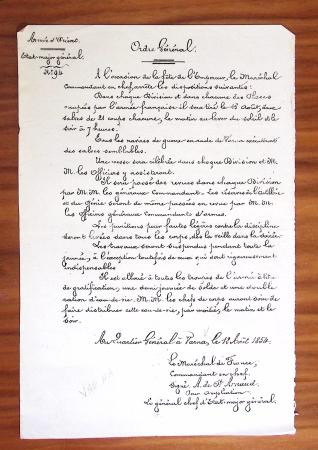 Armée d'Orient.
Etat-major général.
N° 94
Ordre Général.
A l'occasion de la fête de l'Empereur, le Maréchal
Commandant en chef, arrête les dispositions suivantes :
Dans chaque Division et dans chacune des Places
occupées par l'armée française il sera tiré le 15 Août, deux
salves de 21 coups chacune, le matin au lever du soleil et le
soir à 7 heures.
Tous les navires de guerre en rade de Varna exécuteront
des salves semblables.
Une messe sera célébrée dans chaque Division et M.
M. les Officiers y assisteront.
Il sera passé des revues dans chaque Division
par M.M. les généraux Commandants. Les réserves de l'artillerie
et du Génie seront de même passées en revue par M.M.
les officiers généraux Commandants d'armes.
Les punitions pour fautes légères contre la discipline
seront levées dans tous les corps, dès la veille dans la soirée.
Les travaux seront suspendus pendant toute la
journée, à l'exception toutefois de ceux qui sont rigoureusement
indispensables.
Il est alloué à toutes les troupes de l'armée à titre
de gratification, une demi-journée de solde et une double
ration d'eau-de-vie. M.M. les chefs de corps auront soin de
faire distribuer cette eau-de-vie, par moitié, le matin et le
soir.
Au Quartier Général à Varna, le 12 Août 1854.
Le Maréchal de France,
Commandant en chef,
Signé, A. de St Arnaud
Pour ampliation
Le général chef d'Etat-major général.